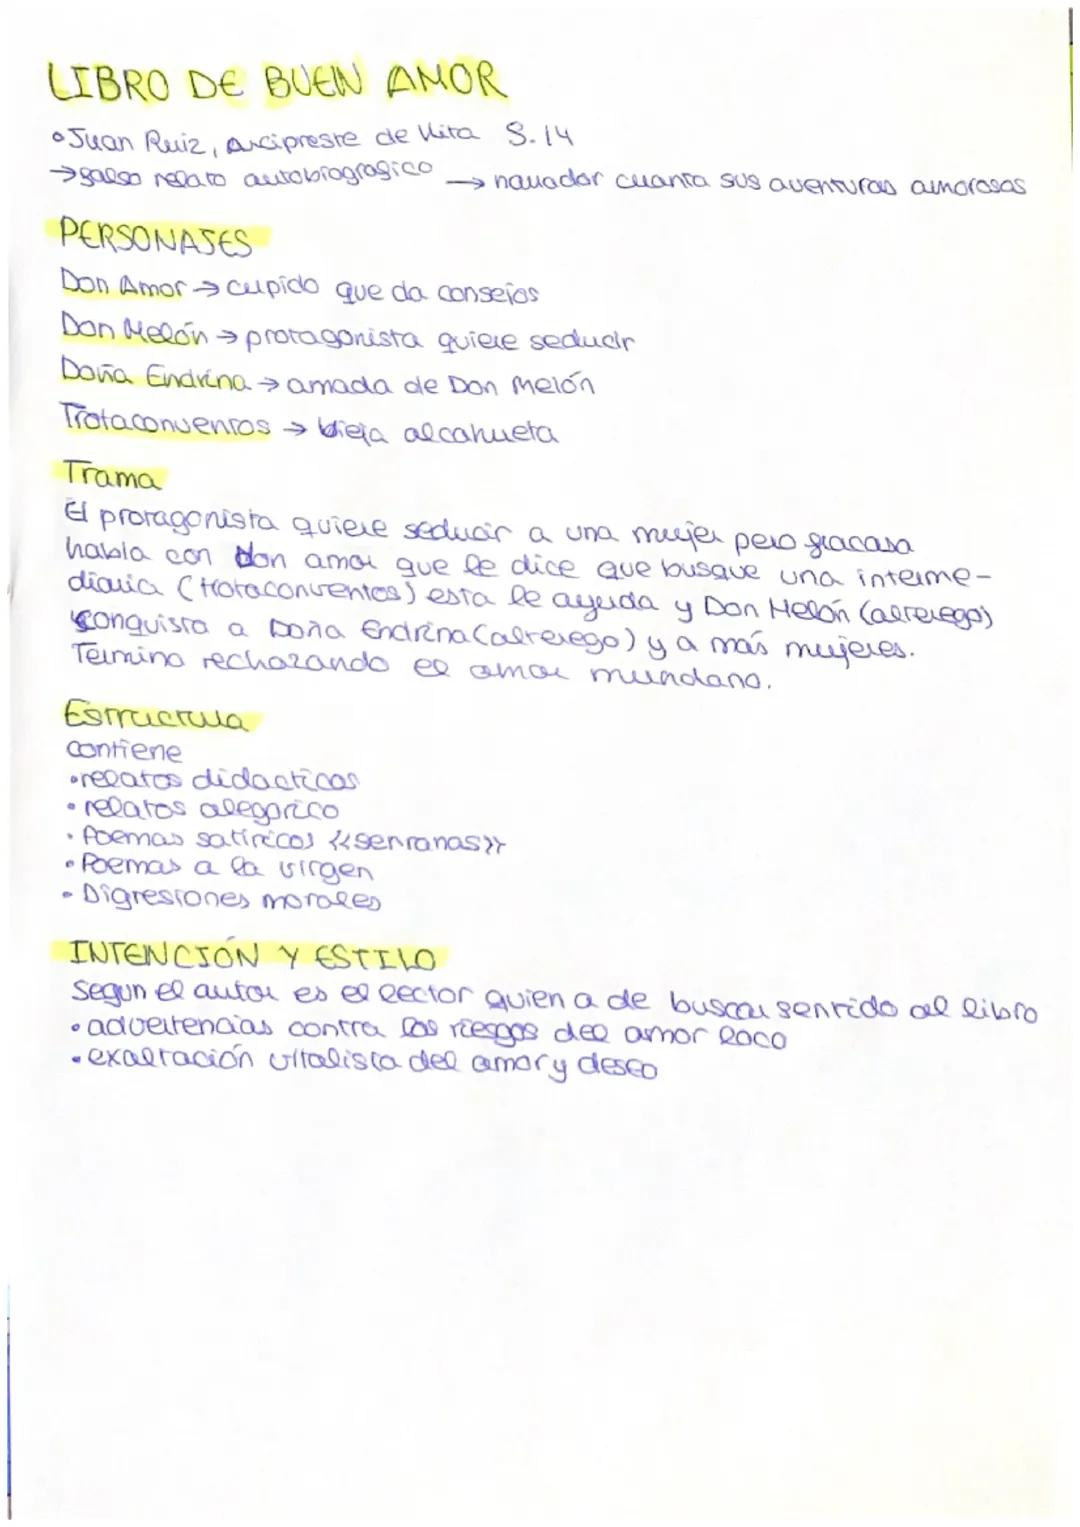 LIBRO DE BUEN AMOR
• Juan Ruiz, Arcipreste de Hita S. 14
→ falso relato autobiografico → narrador cuanta sus aventuras amorosas
PERSONAJES
Don Amor → cupido que da consejos
Don Melón → protagonista quiere seducir
Doña Endrina → amada de Don Melón
Trotaconventos → vieja alcahueta
Trama
El protagonista quiere seducir a una mujer pero fracasa
habla con don amor que le dice que busque una interme-
diaria (trotaconventos) esta le ayuda y Don Melón (alterego)
conquista a Doña Endrina (alterego) y a más mujeres.
Termina rechazando el amor mundano.
Estructura
contiene
• relatos didacticos
• relatos alegorico
• Poemas satiricos <<serranas>>
• Poemas a la virgen
• Digresiones morales
INTENCIÓN Y ESTILO
Segun el autor es el lector quien a de buscar sentido al libro
• advertencias contra los riesgos del amor loco
• exaltación vitalista del amor y deseo